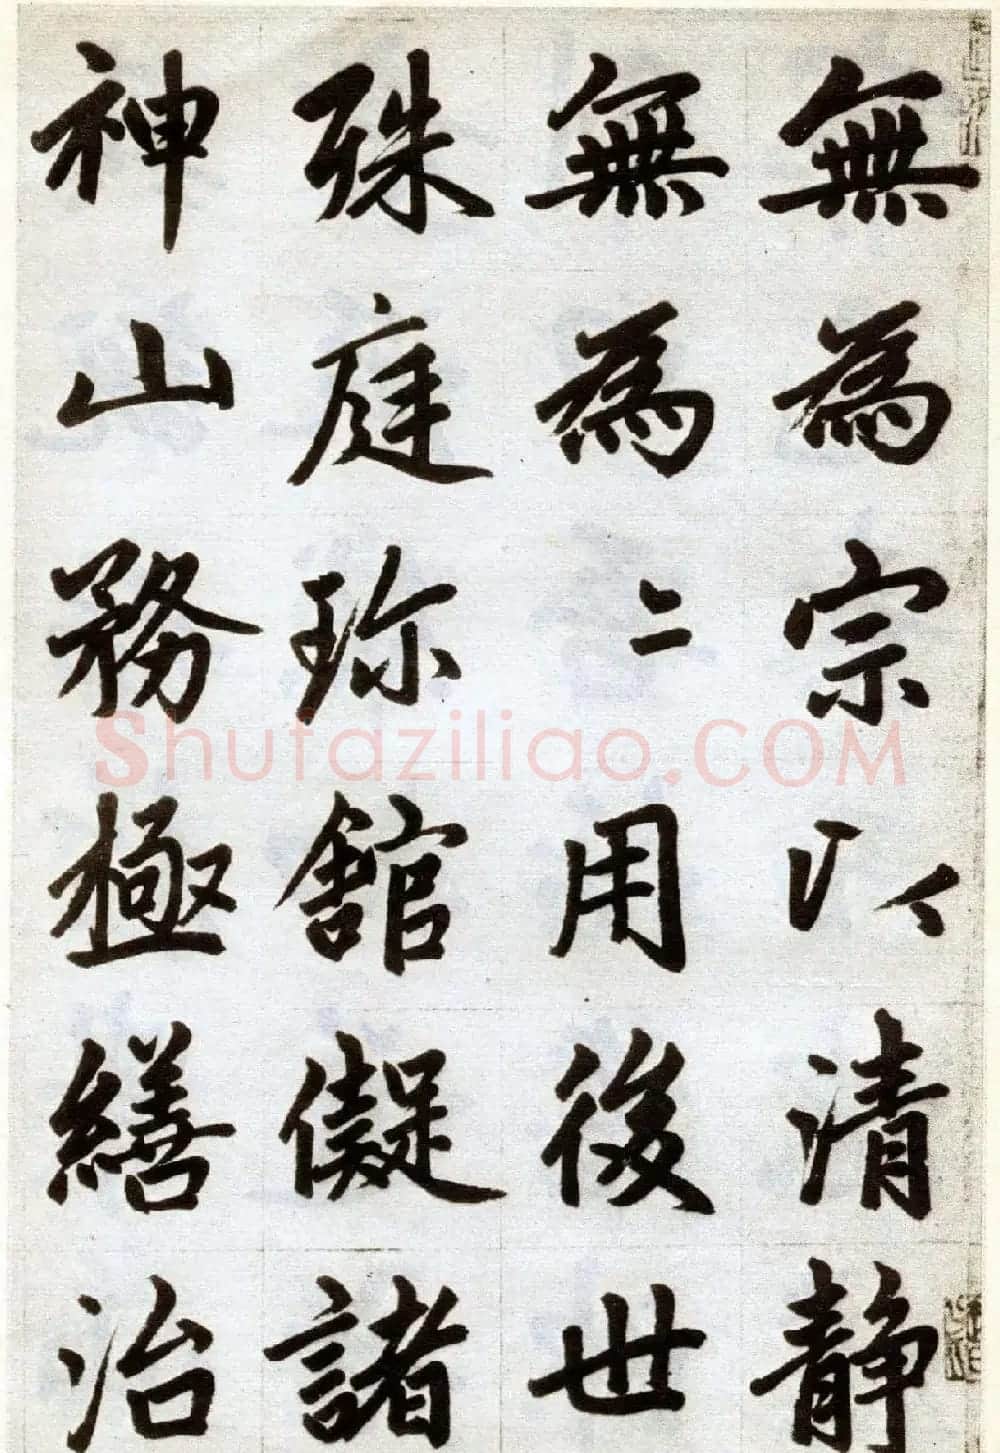 無為宗以清静
無為二用後世
殊庭珎舘儗諸
神山務極繕治
Shufaziliao.COM